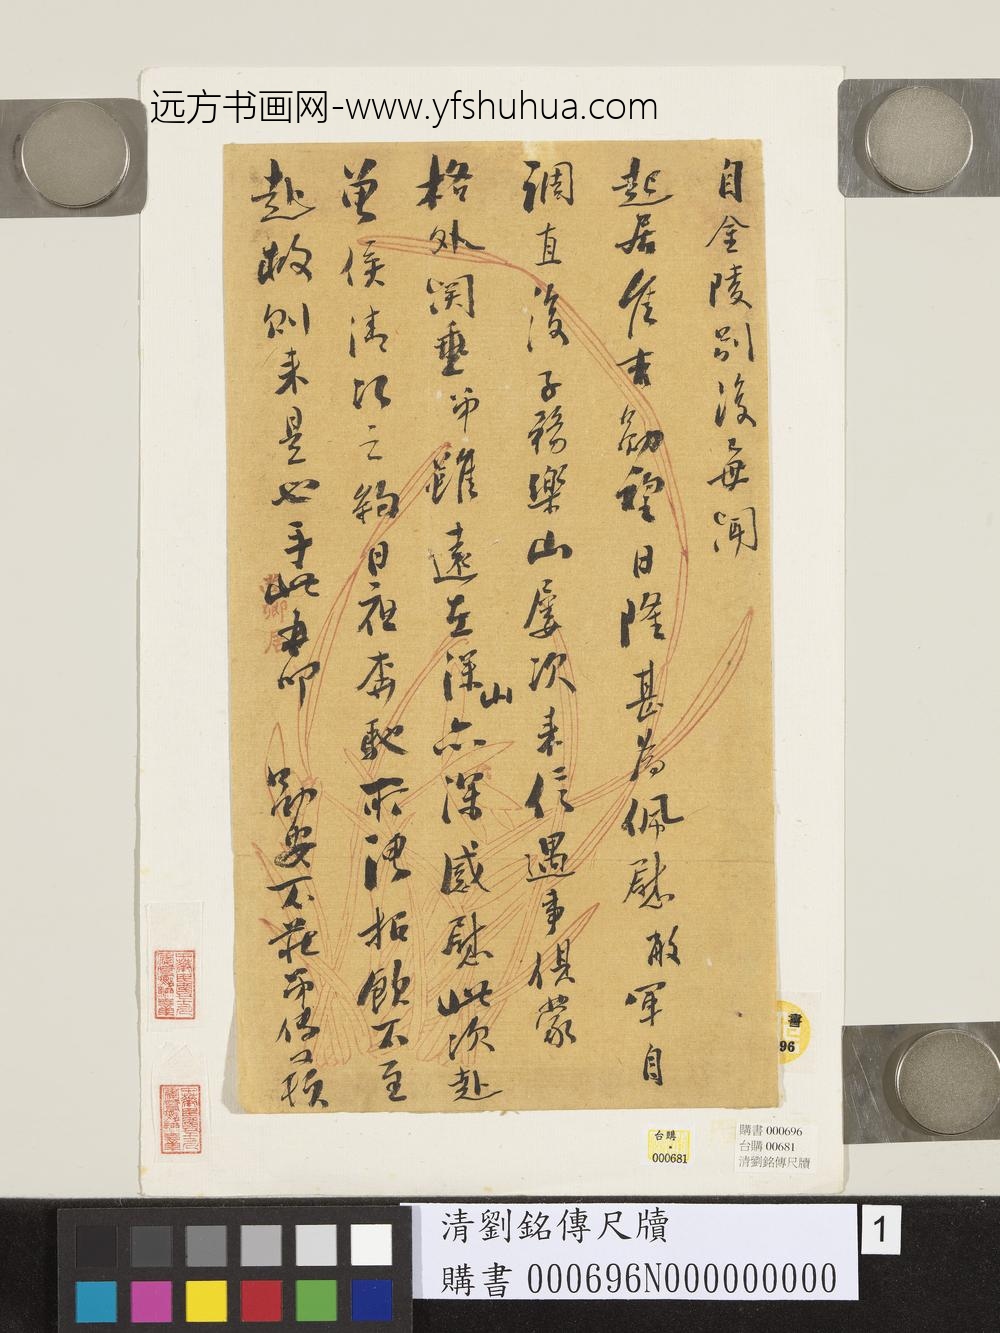 远方书画网-www.yfshuhua.com
自金陵別後毋聞
起居隹吉勛祺日隆甚為佩慰敝軍自
調直後子務樂山屡次来信遇事俱蒙
格外関垂弟雖遠在深山亦深感慰此次赴
曾侯清江之約日夜奔馳所
赴敝則来是也手此即叩
勛安不莊弟傳頓
書
96
台購
000681
購書 000696
台購 00681
清劉銘傳尺牘
清劉銘傳尺牘
購書 000696N000000000
1